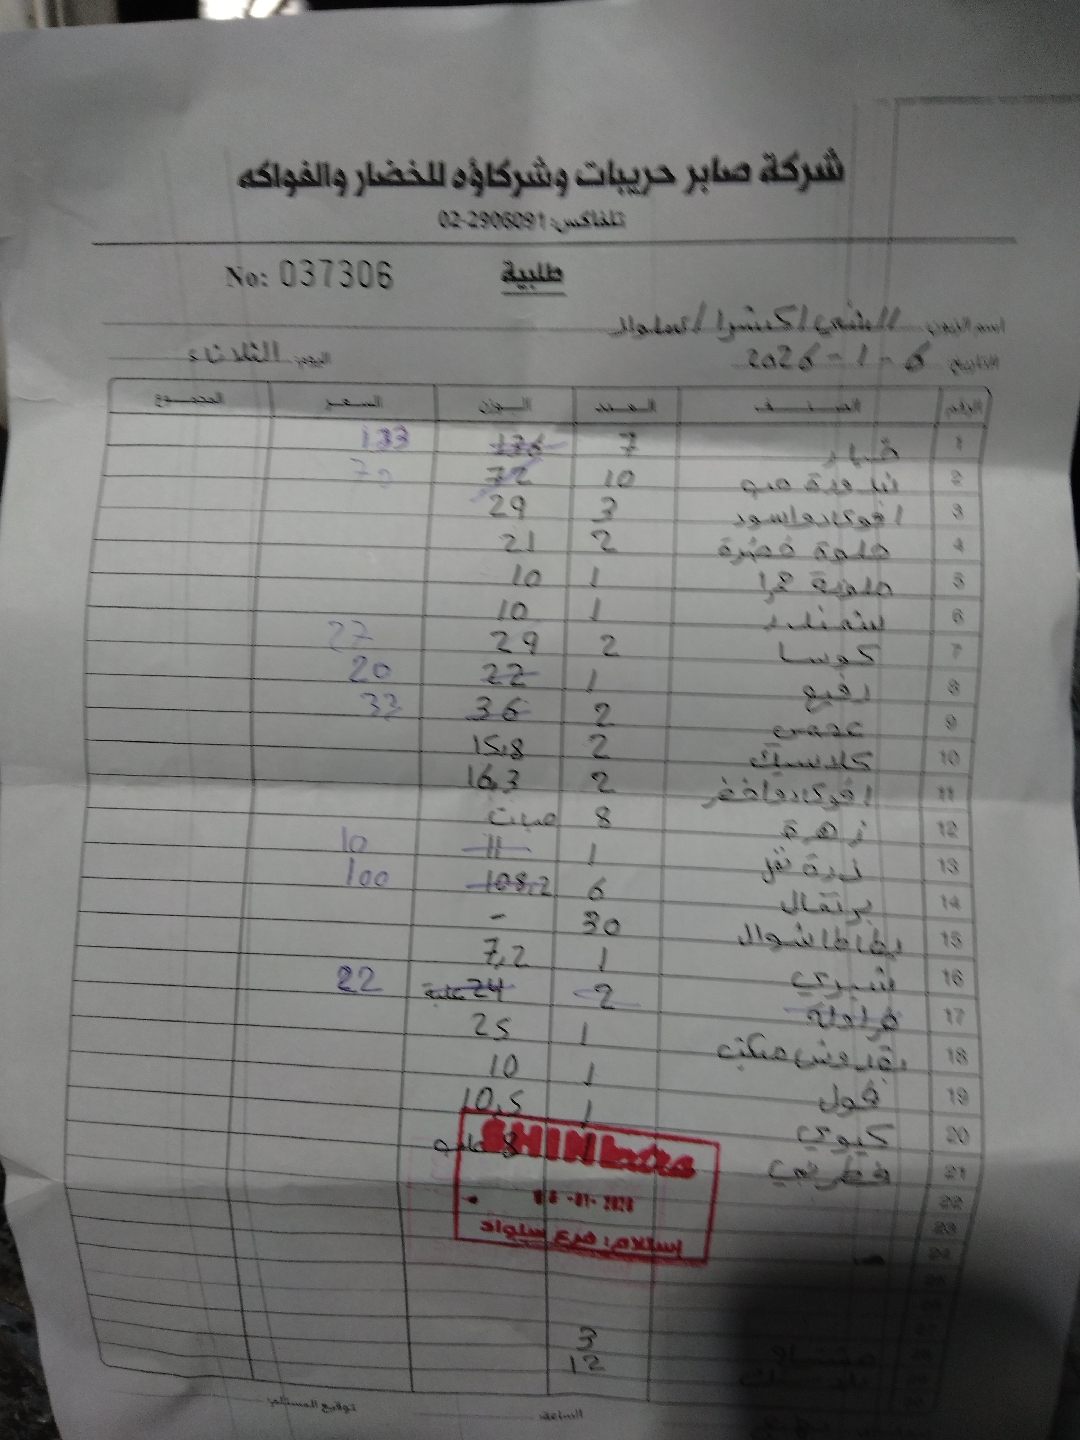 شركة صابر حريبات وشركاؤه للخضار والفواكه
تلفاكس: 02-2906091
No: 037306 طلبية
اسم الزبون الشني اكسترا / سلواد
التاريخ 6-1-2026 اليوم الثلاثاء
الرقم الصنف العدد الوزن السعر المجموع
1 خيار 7 136 133
2 بندورة حب 10 72 70
3 افوكادو اسود 3 29
4 حلوة خضرة 2 21
5 حلوة حمرا 1 10
6 شمندر 1 10
7 كوسا 2 29 27
8 رفيع 1 22 20
9 عجمي 2 36 33
10 كلاسيك 2 15,8
11 افوكادو اخضر 2 16,3
12 زهرة 8 حبات
13 ذرة 1 11 10
14 برتقال 6 108,2 100
15 بطاطا شوال 30 -
16 شيري 1 7,2
17 فراولة 2 24 علبة 22
18 بقدونس مكتب 1 25
19 فول 1 10
20 كيوي 1 10,5
21 8
22
23
24
SHINI extra
06-01-2026
إستلام: فرع سلواد
مشتاح 3
بلاستيك 12
الساعة: توقيع المستلم: